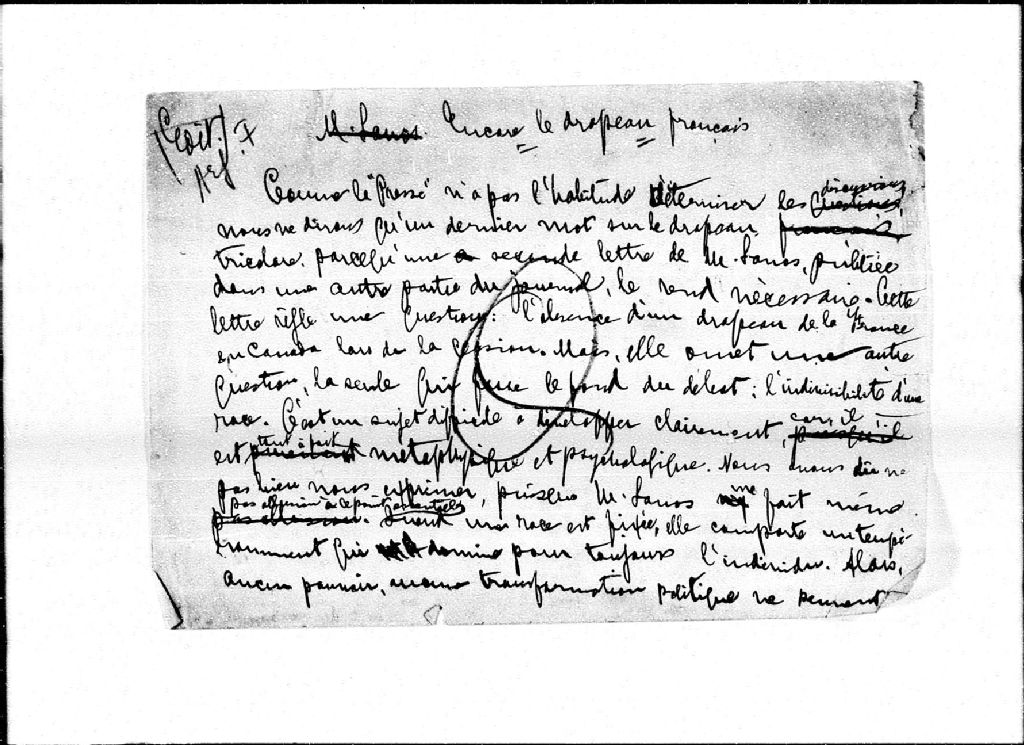 (Edit.)
M. Lanos. Encore le drapeau français
Comme la "Presse" n'a pas l'habitude d'éterniser les questions, discussions,
nous ne dirons qu'un dernier mot sur le drapeau français
tricolore. parcequ'une seconde lettre de M. Lanos, publiée
dans une autre partie du journal, le rend nécessaire. Cette
lettre règle une question: l'absence d'un drapeau de la France
au Canada lors de la cession. Mais, elle omet une autre
question, la seule qui fasse le fond du débat: l'indivisibilité d'une
race. C'est un sujet difficile à développer clairement, puisqu'il car, il
est tout à fait métaphysique et psychologique. Nous avons dû ne
pas bien nous exprimer, puisque M. Lanos fait même
pas allusion à ce point
une race est fixée, elle comporte un tempé-
rament qui domine pour toujours l'individu. Alors,
aucun pouvoir, aucune transformation politique ne peuvent